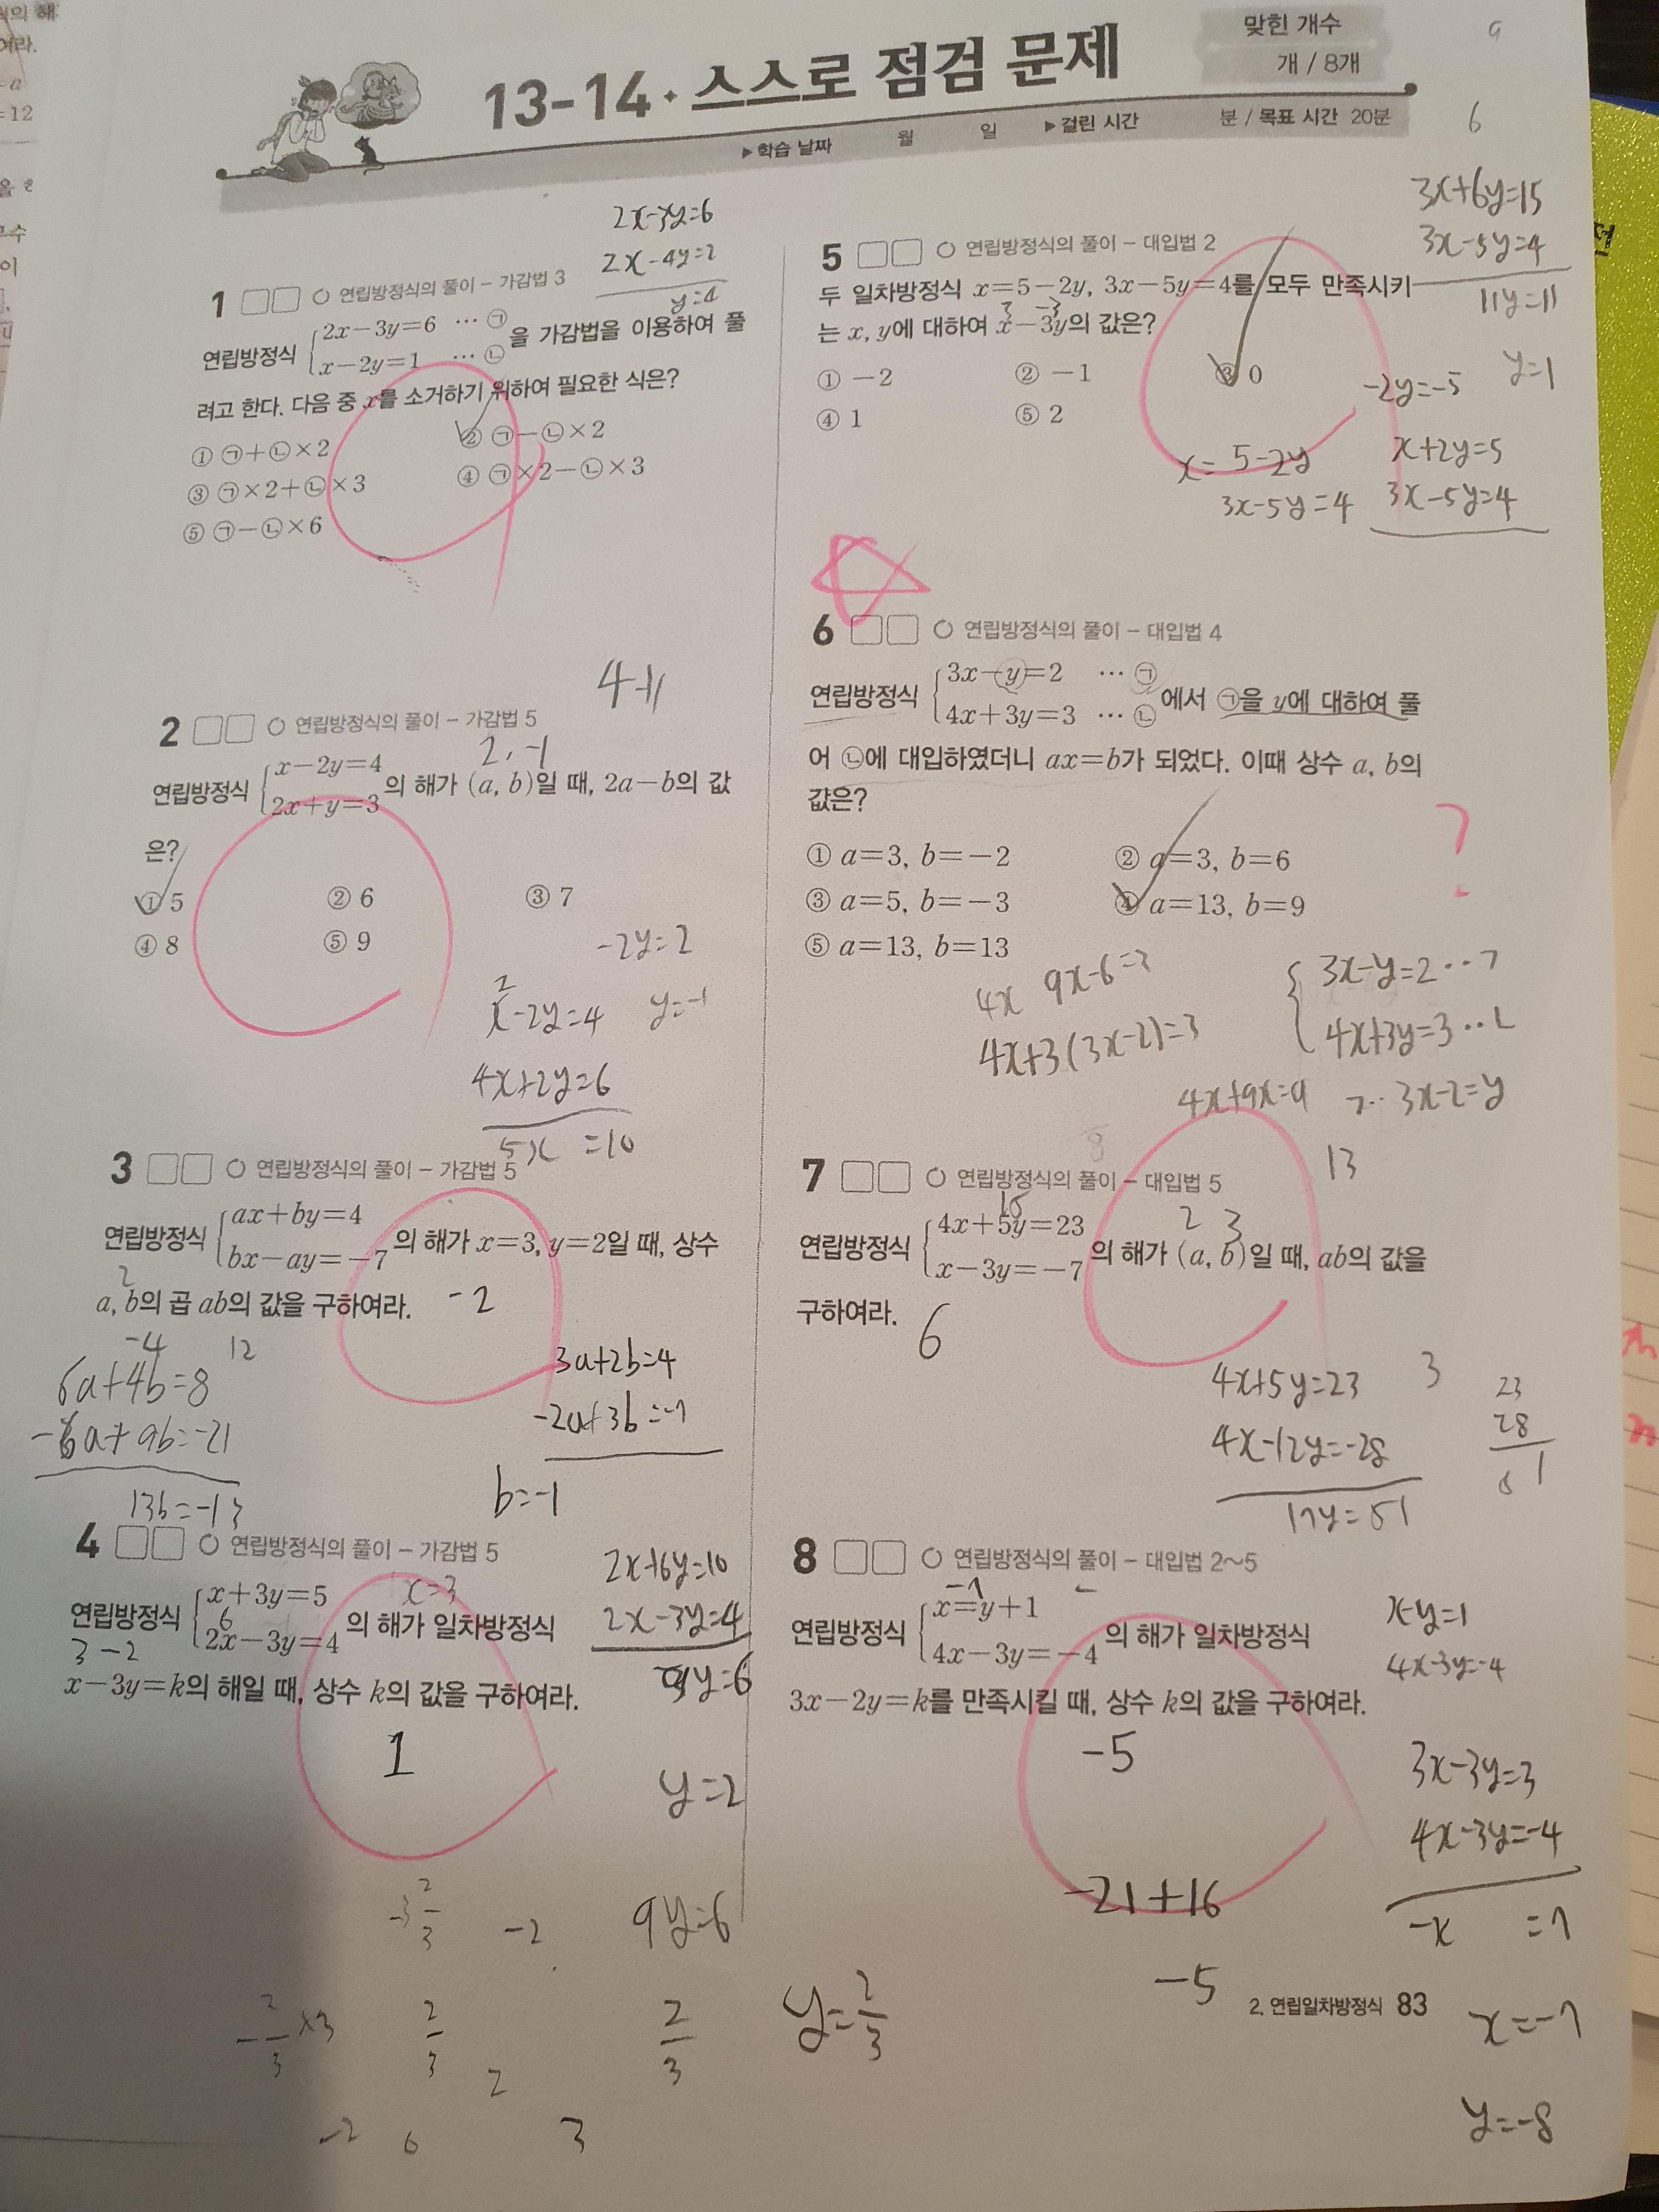 13-14· 스스로 점검 문제
맞힌 개수
개 / 8개
▶학습 날짜 월 일 ▶걸린 시간 분 / 목표 시간 20분
2x-3y=6
2x-4y=2
y=4
1 연립방정식의 풀이 – 가감법 3
연립방정식 { 2x-3y=6 … ㉠
x-2y=1 … ㉡ 을 가감법을 이용하여 풀
려고 한다. 다음 중 x를 소거하기 위하여 필요한 식은?
① ㉠+㉡×2 ② ㉠-㉡×2
③ ㉠×2+㉡×3 ④ ㉠×2-㉡×3
⑤ ㉠-㉡×6
4+1
2 연립방정식의 풀이 – 가감법 5
2, -1
연립방정식 { x-2y=4
2x+y=3 의 해가 (a, b)일 때, 2a-b의 값
은?
① 5 ② 6 ③ 7
④ 8 ⑤ 9
-2y=2
2
x-2y=4 y=-1
4x+2y=6
5x =10
3 연립방정식의 풀이 – 가감법 5
연립방정식 { ax+by=4
bx-ay=-7 의 해가 x=3, y=2일 때, 상수
2
a, b의 곱 ab의 값을 구하여라. -2
-4 12
6a+4b=8
-6a+9b=-21
13b=-13
3a+2b=4
-2a+3b=-7
b=-1
4 연립방정식의 풀이 – 가감법 5
x=3
연립방정식 { x+3y=5
6
2x-3y=4 의 해가 일차방정식
3 -2
x-3y=k의 해일 때, 상수 k의 값을 구하여라.
1
2x+6y=10
2x-3y=4
9y=6
y=2
9y=6
-2
2/3
2/3
y=2/3
-2 6 3
6
3x+6y=15
3x-5y=4
11y=11
y=1
5 연립방정식의 풀이 – 대입법 2
두 일차방정식 x=5-2y, 3x-5y=4를 모두 만족시키
3 -3
는 x, y에 대하여 x-3y의 값은?
① -2 ② -1 ③ 0
④ 1 ⑤ 2
-2y=-5
x=5-2y
3x-5y=4
x+2y=5
3x-5y=4
6 연립방정식의 풀이 – 대입법 4
연립방정식 { 3x-y=2 … ㉠
4x+3y=3 … ㉡ 에서 ㉠을 y에 대하여 풀
어 ㉡에 대입하였더니 ax=b가 되었다. 이때 상수 a, b의
값은?
① a=3, b=-2 ② a=3, b=6
③ a=5, b=-3 ④ a=13, b=9
⑤ a=13, b=13
?
4x 9x-6=3
4x+3(3x-2)=3
4x+9x=9
{ 3x-y=2 ‥ ㄱ
4x+3y=3 ‥ ㄴ
ㄱ‥ 3x-2=y
13
7 연립방정식의 풀이 – 대입법 5
15
2 3
연립방정식 { 4x+5y=23
x-3y=-7 의 해가 (a, b)일 때, ab의 값을
구하여라. 6
4x+5y=23 3
4x-12y=-28
17y=51
23
28
8 연립방정식의 풀이 – 대입법 2~5
-7
연립방정식 { x=y+1
4x-3y=-4 의 해가 일차방정식
3x-2y=k를 만족시킬 때, 상수 k의 값을 구하여라.
-5
x-y=1
4x-3y=-4
3x-3y=3
4x-3y=-4
-x =7
-21+16
-5
x=-7
y=-8
2. 연립일차방정식 83